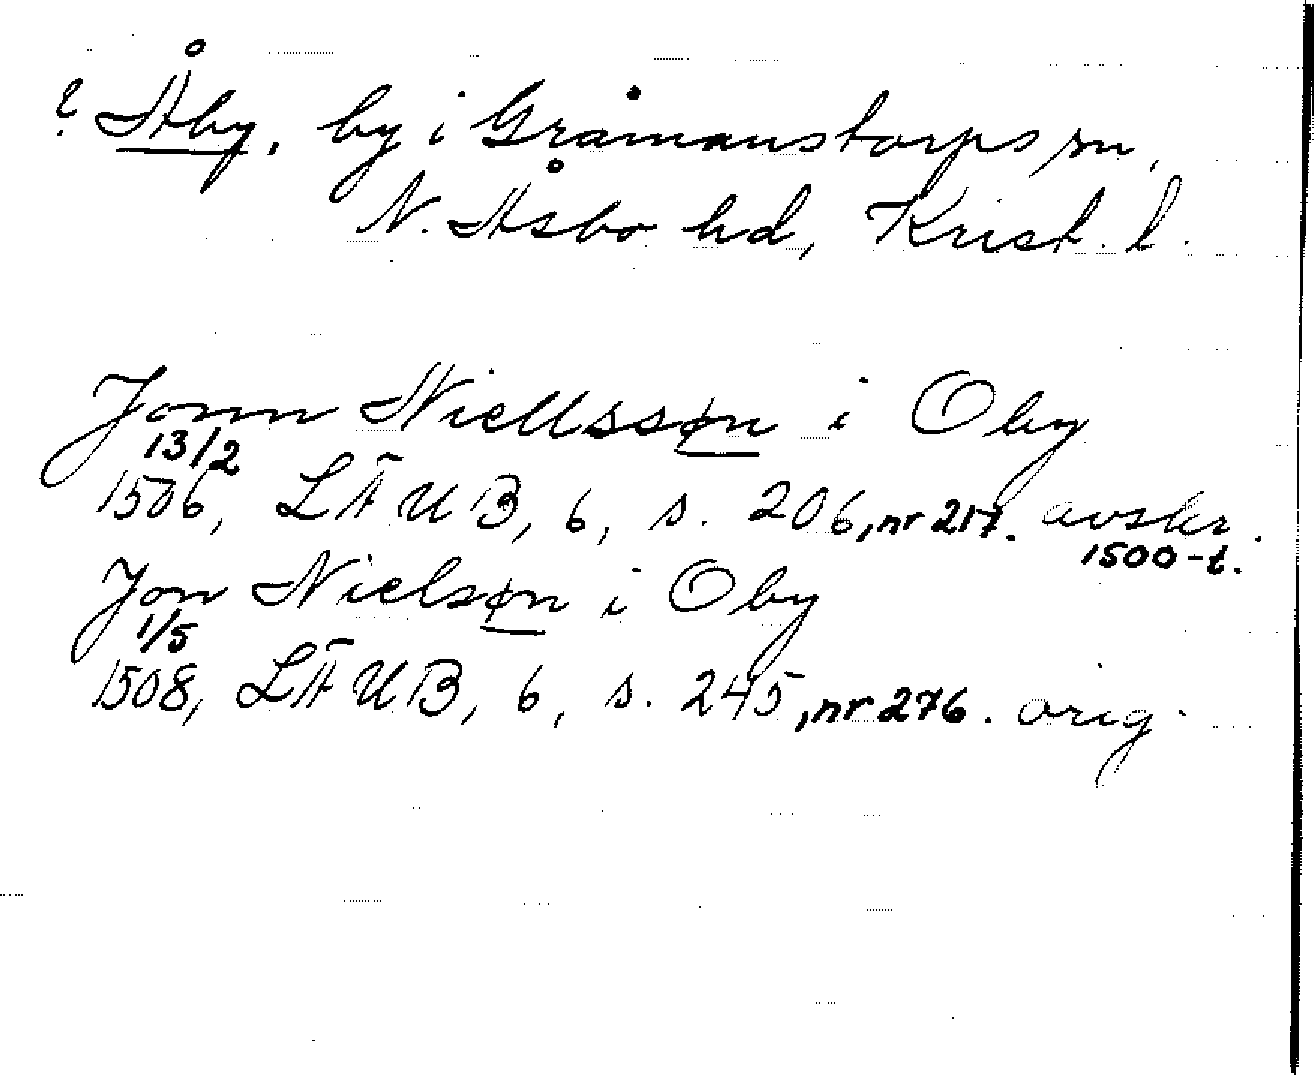 ? Åby, by i Gråmanstorps sn,
N. Åsbo hd, Krist. l.
Jonn Niellssøn i Oby
13/2
1506, LÄUB, 6, s. 206, nr 217. avskr.
1500-t.
Jon Nielsøn i Oby
1/5
1508, LÄUB, 6, s. 245, nr 276. orig.